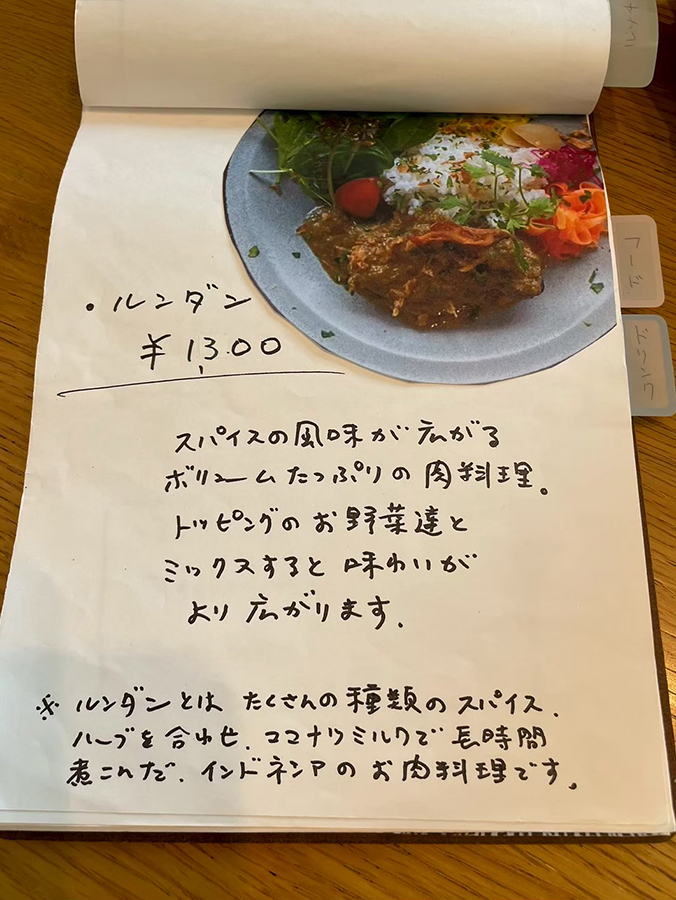 ・ルンダン
¥1,300
スパイスの風味が広がる
ボリュームたっぷりの肉料理。
トッピングのお野菜達と
ミックスすると味わいが
より広がります.
※ルンダンとは たくさんの種類のスパイス、
ハーブを合わせ、ココナツミルクで長時間
煮こんだ、インドネシアのお肉料理です。
フード
ドリンク